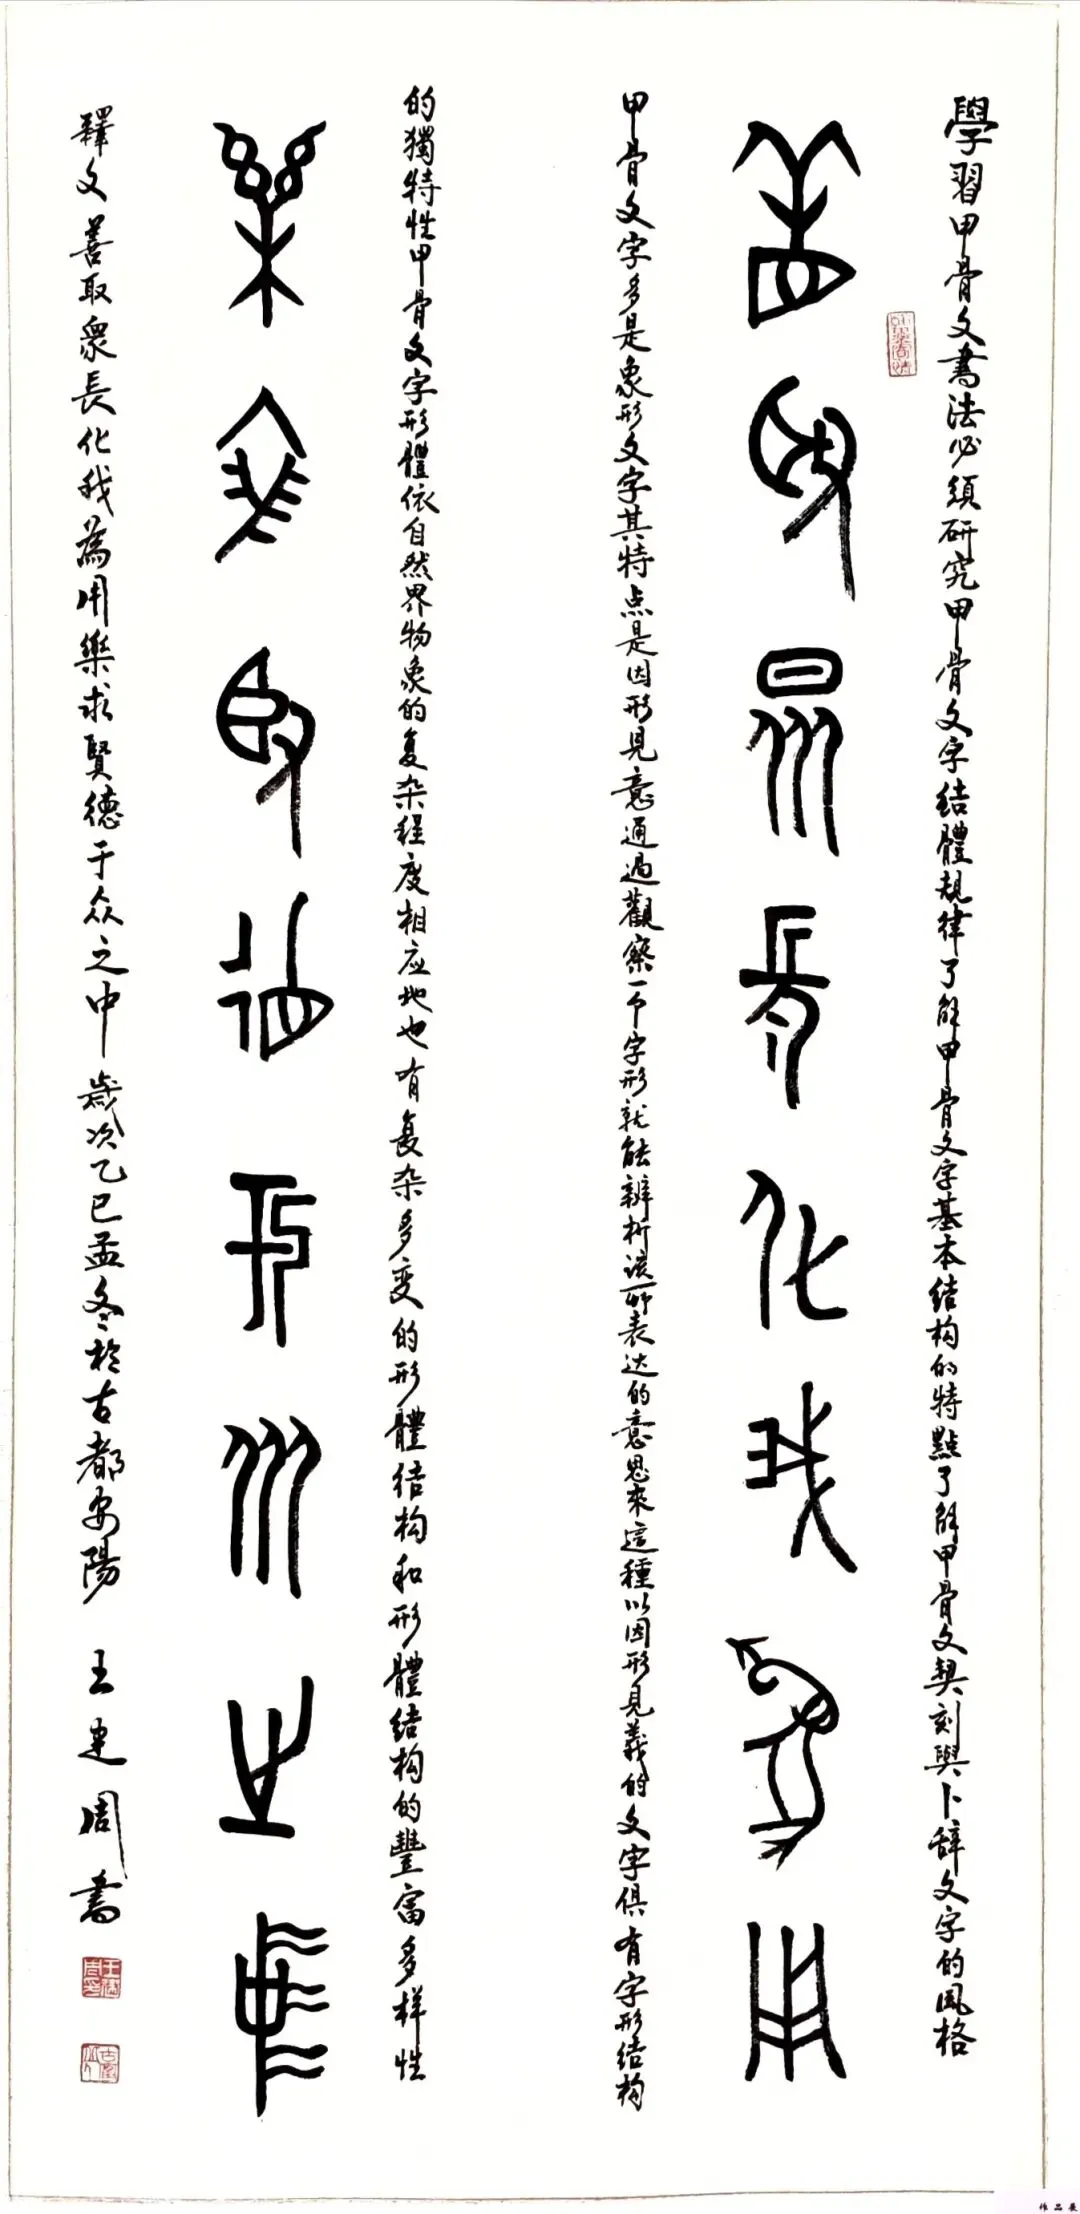 學習甲骨文書法必須研究甲骨文字结體規律了解甲骨文字基本结构的特點了解甲骨文契刻與卜辞文字的風格
善取眾長化我為用
甲骨文字多是象形文字其特点是因形見意通過觀察一个字形就能辨析该所表达的意思來這種以因形見義的文字俱有字形结构
的獨特性甲骨文字形體依自然界物象的复杂程度相应地也有复杂多变的形體结构和形體结构的豐富多样性
樂求賢德于众之中
釋文善取眾長化我為用樂求賢德于众之中歲次乙巳孟冬於古都安陽王建周書
作品展